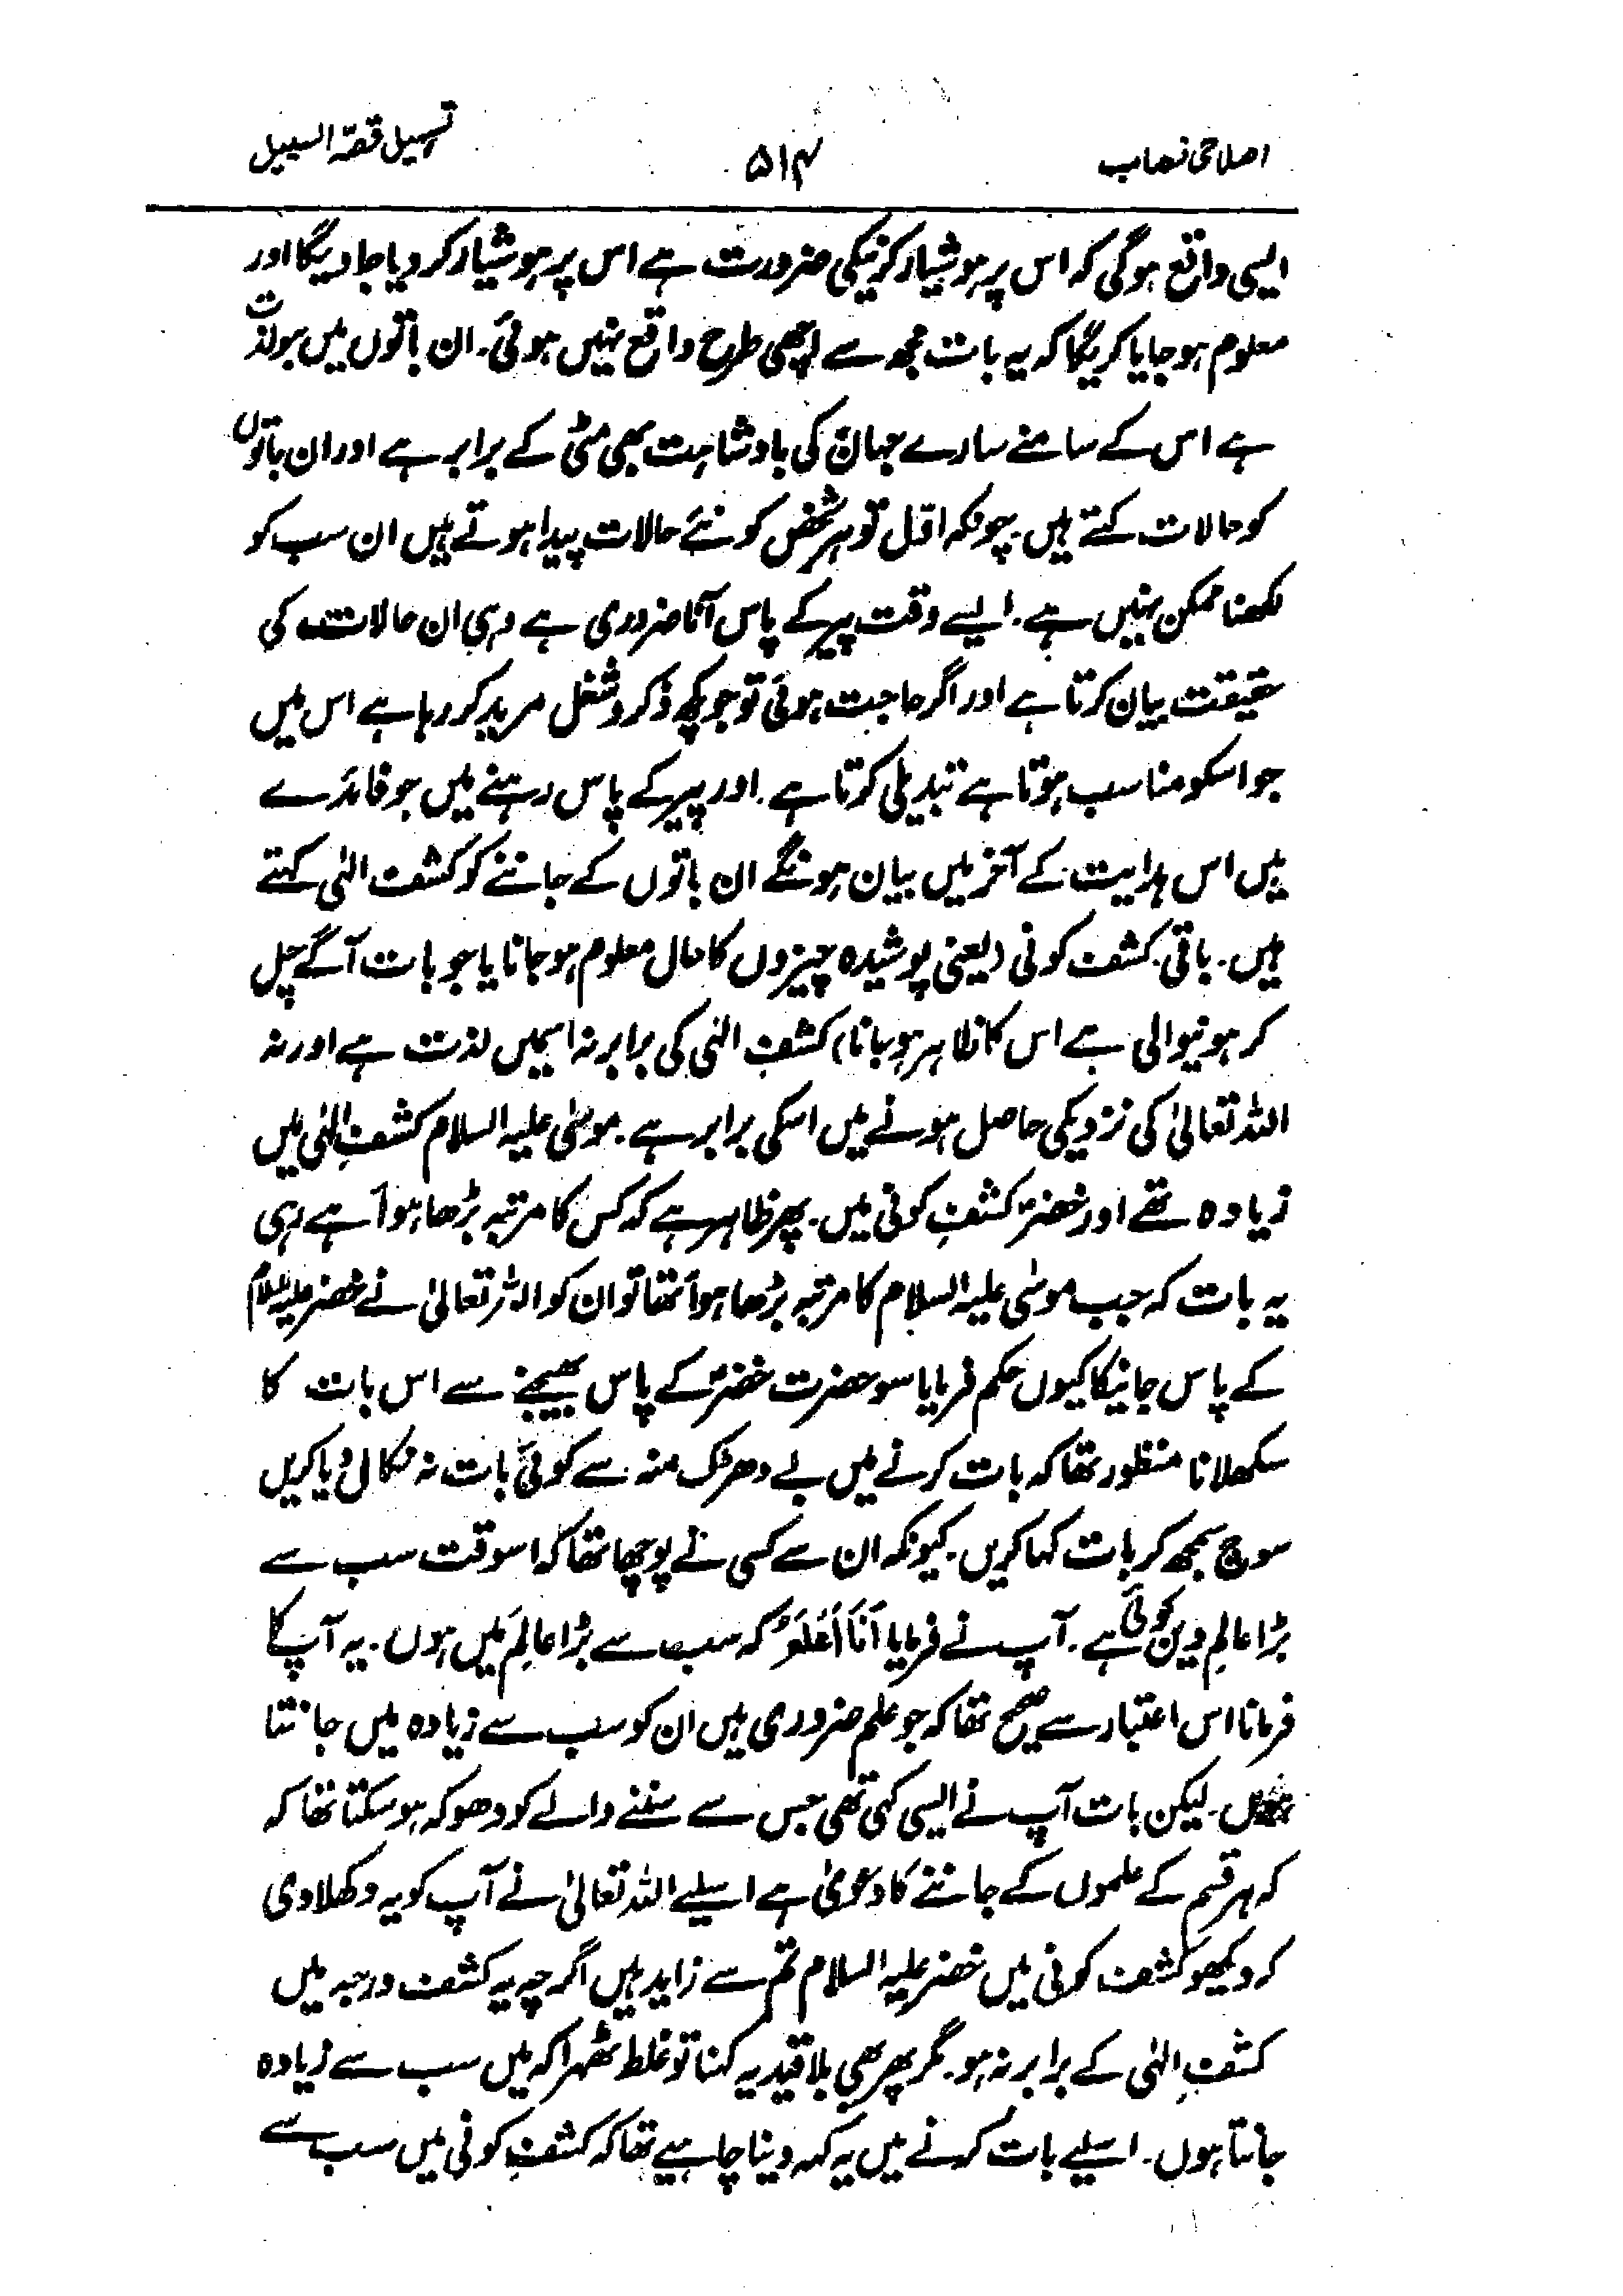 اصلاحی نصاب ۵۱۴ تسہیل قصد السبیل
ایسی واقع ہوگی کہ اس پر ہوشیار کرنیکی ضرورت ہے اس پر ہوشیار کر دیا جاویگا اور
معلوم ہو جایا کریگا کہ یہ بات مجھ سے اچھی طرح واقع نہیں ہوئی۔ ان باتوں میں جو لذت
ہے اس کے سامنے سارے جہان کی بادشاہت بھی مٹی کے برابر ہے اور ان باتوں
کو حالات کہتے ہیں۔ چونکہ اوّل تو ہر شخص کو نئے حالات پیدا ہوتے ہیں ان سب کو
لکھنا ممکن نہیں ہے۔ ایسے وقت پیر کے پاس آنا ضروری ہے وہی ان حالات کی
حقیقت بیان کرتا ہے اور اگر حاجت ہوئی تو جو کچھ ذکر و شغل مرید کر رہا ہے اس میں
جو اسکو مناسب ہوتا ہے تبدیلی کرتا ہے۔ اور پیر کے پاس رہنے میں جو فائدے
ہیں اس ہدایت کے آخر میں بیان ہونگے ان باتوں کے جاننے کو کشف الٰہی کہتے
ہیں۔ باقی کشف کونی (یعنی پوشیدہ چیزوں کا حال معلوم ہو جانا یا جو بات آگے چل
کر ہونیوالی ہے اس کا ظاہر ہو جانا) کشفِ الٰہی کی برابر نہ اسمیں لذت ہے اور نہ
اللہ تعالیٰ کی نزدیکی حاصل ہونے میں اسکی برابر ہے۔ موسیٰ علیہ السلام کشفِ الٰہی میں
زیادہ تھے اور خضرؑ کشفِ کونی میں۔ پھر ظاہر ہے کہ کس کا مرتبہ بڑھا ہوآ ہے رہی
یہ بات کہ جب موسٰی علیہ السلام کا مرتبہ بڑھا ہوآ تھا تو ان کو اللہ تعالیٰ نے خضر علیہ السلام
کے پاس جانیکا کیوں حکم فرمایا سو حضرت خضرؑ کے پاس بھیجنے سے اس بات کا
سکھلانا منظور تھا کہ بات کرنے میں بے دھڑک منہ سے کوئی بات نہ نکال دیا کریں
سوچ سمجھ کر بات کہا کریں۔ کیونکہ ان سے کسی نے پوچھا تھا کہ اسوقت سب سے
بڑا عالِم دین کوئی ہے۔ آپ نے فرمایا اَنَا اَعْلَمُ کہ سب سے بڑا عالِم مَیں ہوں۔ یہ آپ کا
فرمانا اس اعتبار سے صحیح تھا کہ جو علم ضروری ہیں ان کو سب سے زیادہ میں جانتا
ہوں۔ لیکن بات آپ نے ایسی کہی تھی جس سے سننے والے کو دھوکہ ہو سکتا تھا کہ
کہ ہر قسم کے علموں کے جاننے کا دعویٰ ہے اسلیے اللہ تعالیٰ نے آپ کو یہ دکھلا دی
کہ دیکھو کشف کونی میں خضر علیہ السلام تم سے زاید ہیں اگرچہ یہ کشف درجہ میں
کشفِ الٰہی کے برابر نہ ہو۔ مگر پھر بھی بلا قید یہ کہنا تو غلط ٹھہرا کہ میں سب سے زیادہ
جانتا ہوں۔ اسلیے بات کہنے میں یہ کہہ دینا چاہیے تھا کہ کشفِ کونی میں سب سے